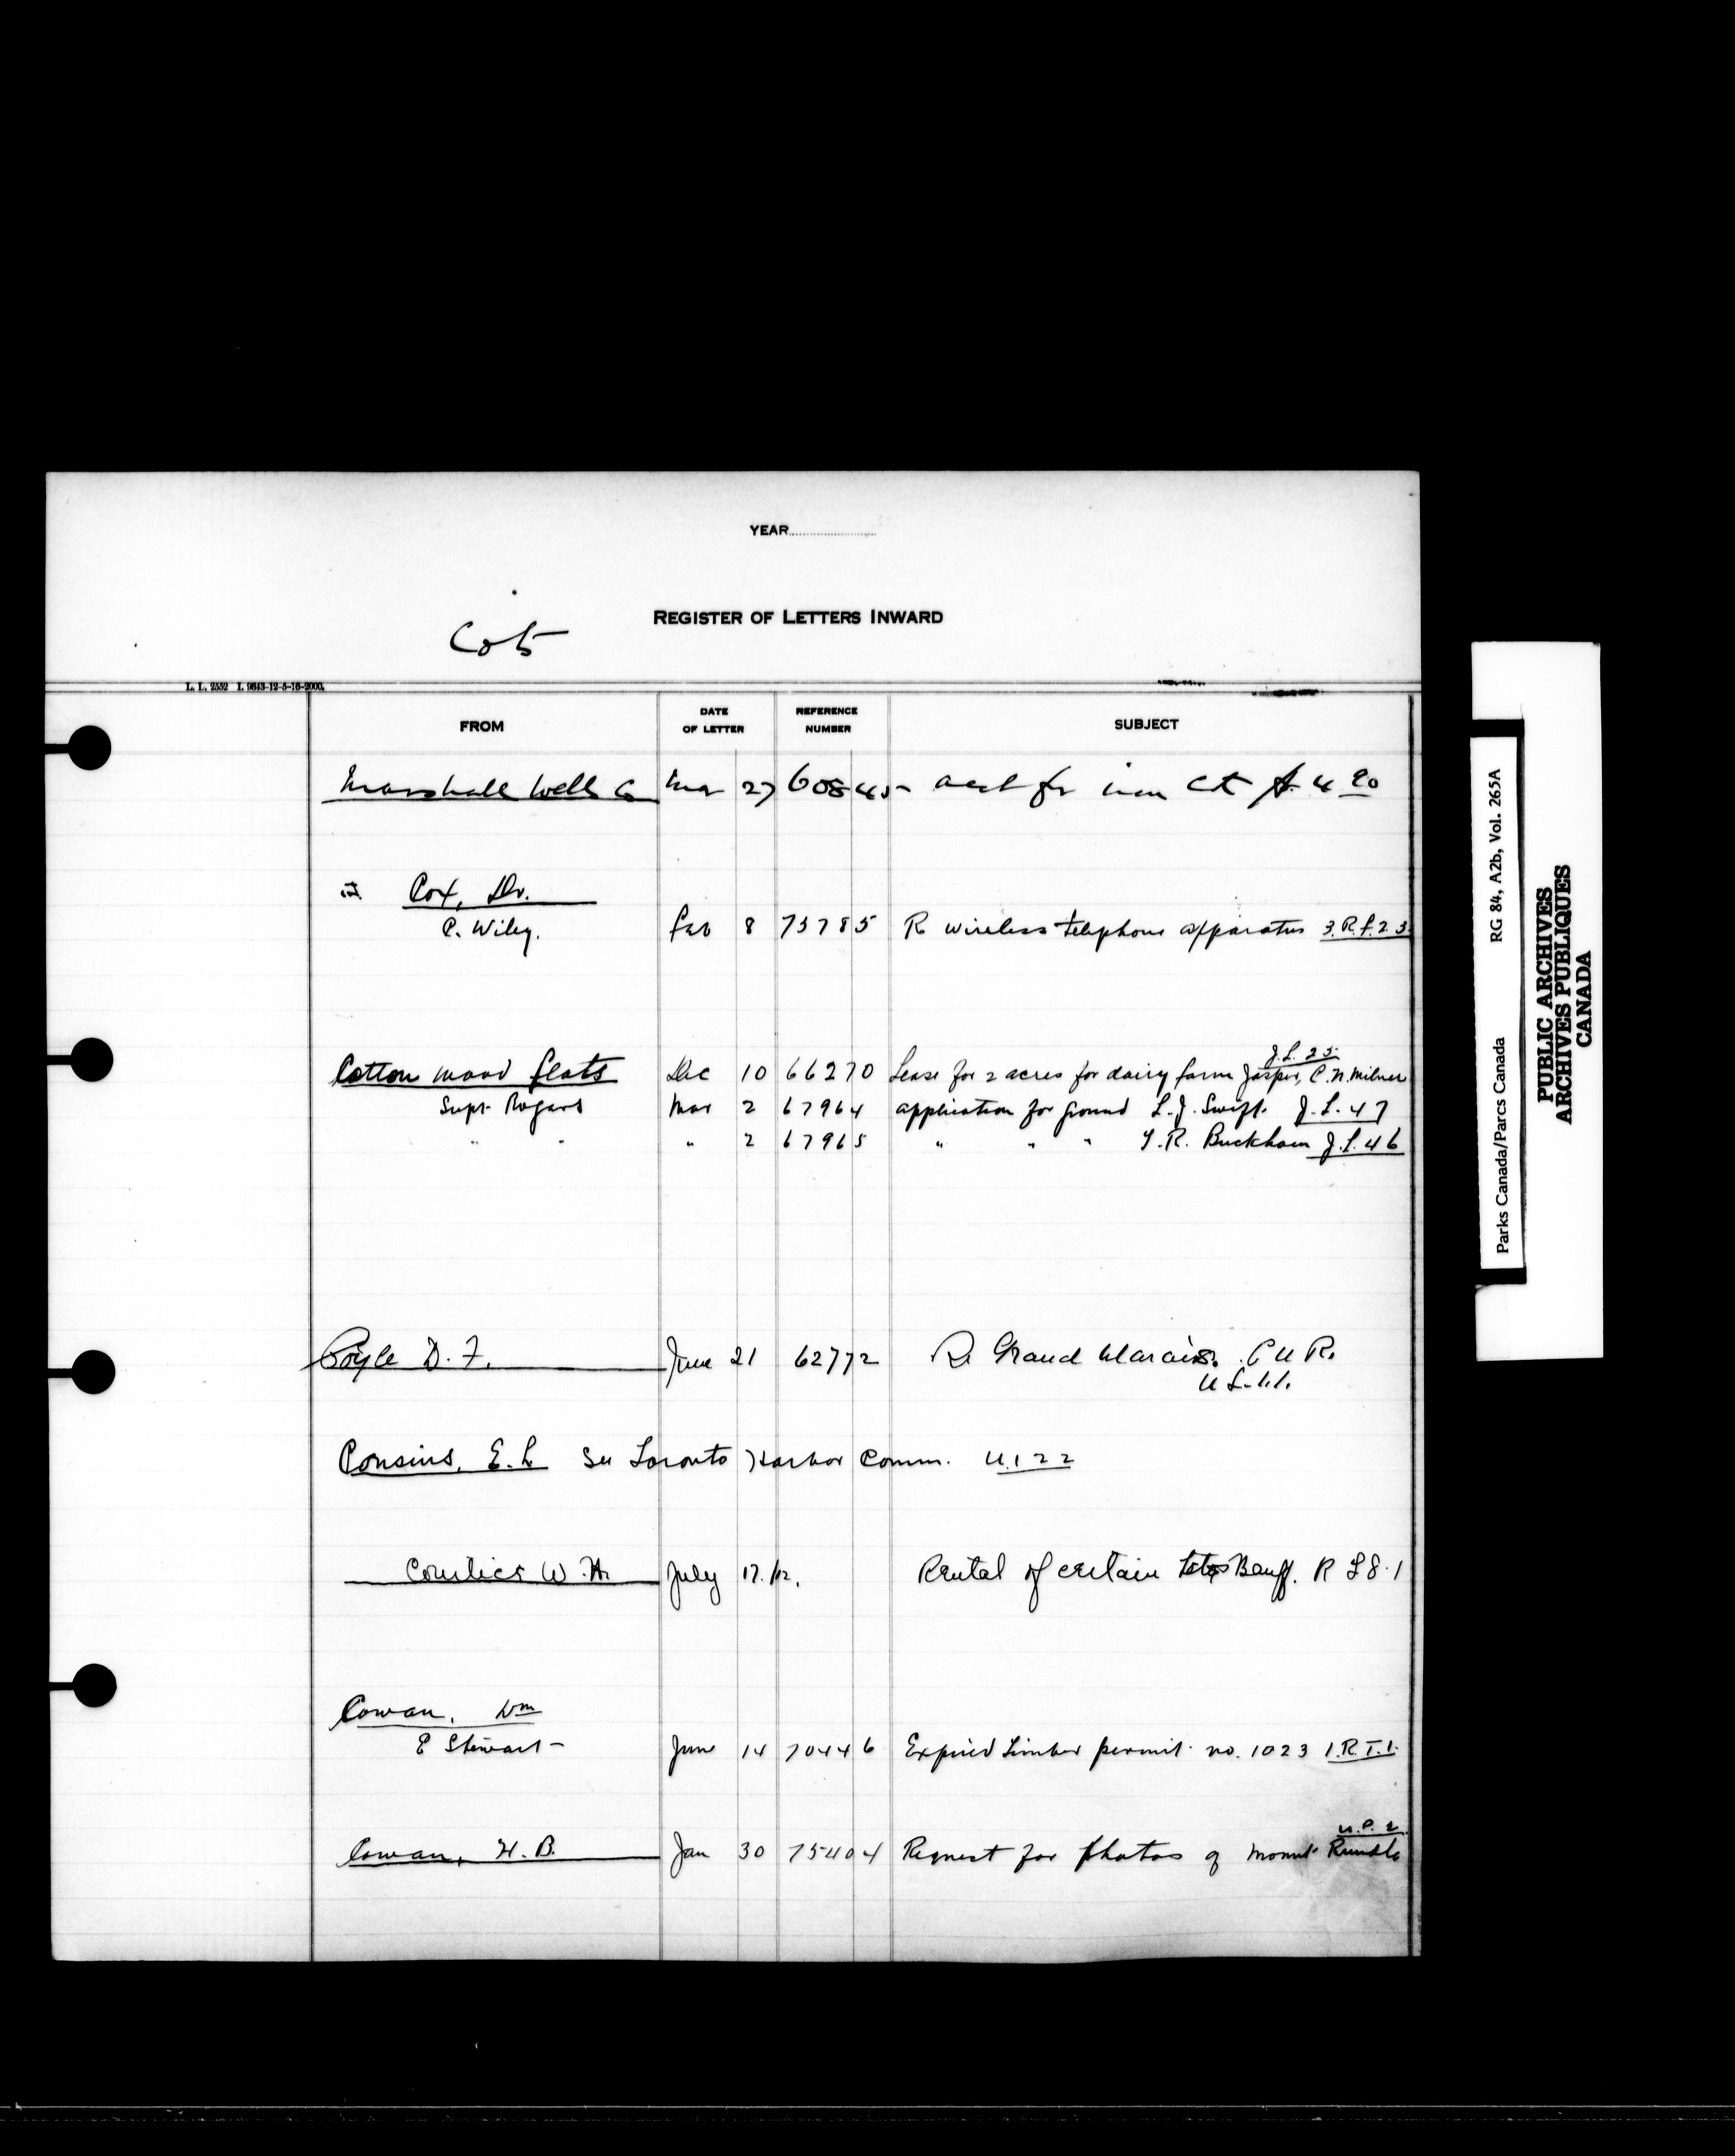 YEAR
REGISTER OF LETTERS INWARD
Cot
L. L. 2552 I. 9643-12-5-16-2000.
FROM DATE OF LETTER REFERENCE NUMBER SUBJECT
Marshall Wells Co Mar 27 60845 acct for iron $4.20
Cox, Dr.
C. Wiley. Feb 8 75785 Re wireless telephone apparatus 3.R.f.23.
J.L.25.
Cotton wood flats Dec 10 66270 Lease for 2 acres for dairy farm Jasper, C.N. Milner
Supt. Rogers Mar 2 67964 application for ground L.J. Swift. J.L.47
" " " 2 67965 " " " Buckham J.L.46
Coyle D. F. June 21 62772 Re Grand Marais.
Cousins, E.L see Toronto Harbor Comm. U.122
W. H. July 17./12. Rental of certain lots Banff. R L8.1
Cowan, Wm
E Stewart June 14 70446 Expired Timber permit no. 1023 1.R.T.1.
U.P.2.
Cowan, H.B. Jan 30 75404 Request for photos of mount Rundle
Parks Canada/Parcs Canada RG 84, A2b, Vol. 265A
PUBLIC ARCHIVES
ARCHIVES PUBLIQUES
CANADA